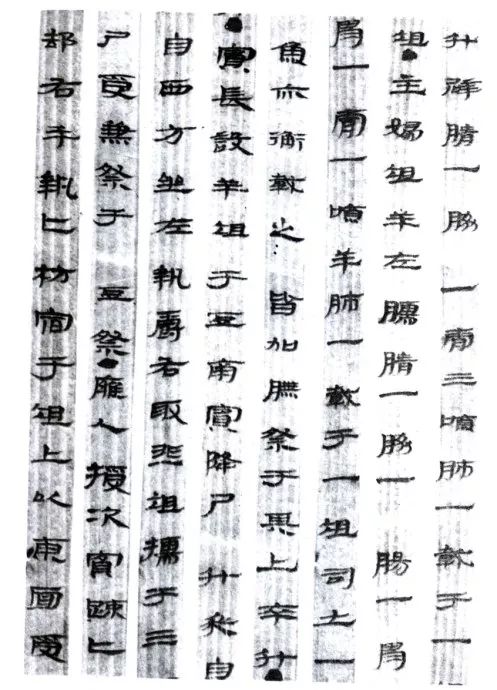 升腈一脅一膚三嚌肺一載于一
俎●主婦俎羊左臑腈一脅一腸一胃
胃一膚一嚌羊肺一載于一俎司士一
魚亦衡載之皆加膴祭于其上卒升●
●賓長設羊俎于豆南賓降尸升筵自
自西方坐左執爵右取韭俎擩于三
尸受兼祭于豆祭●雍人授次賓疏匕
卻右手執匕枋宿于俎上以東面受